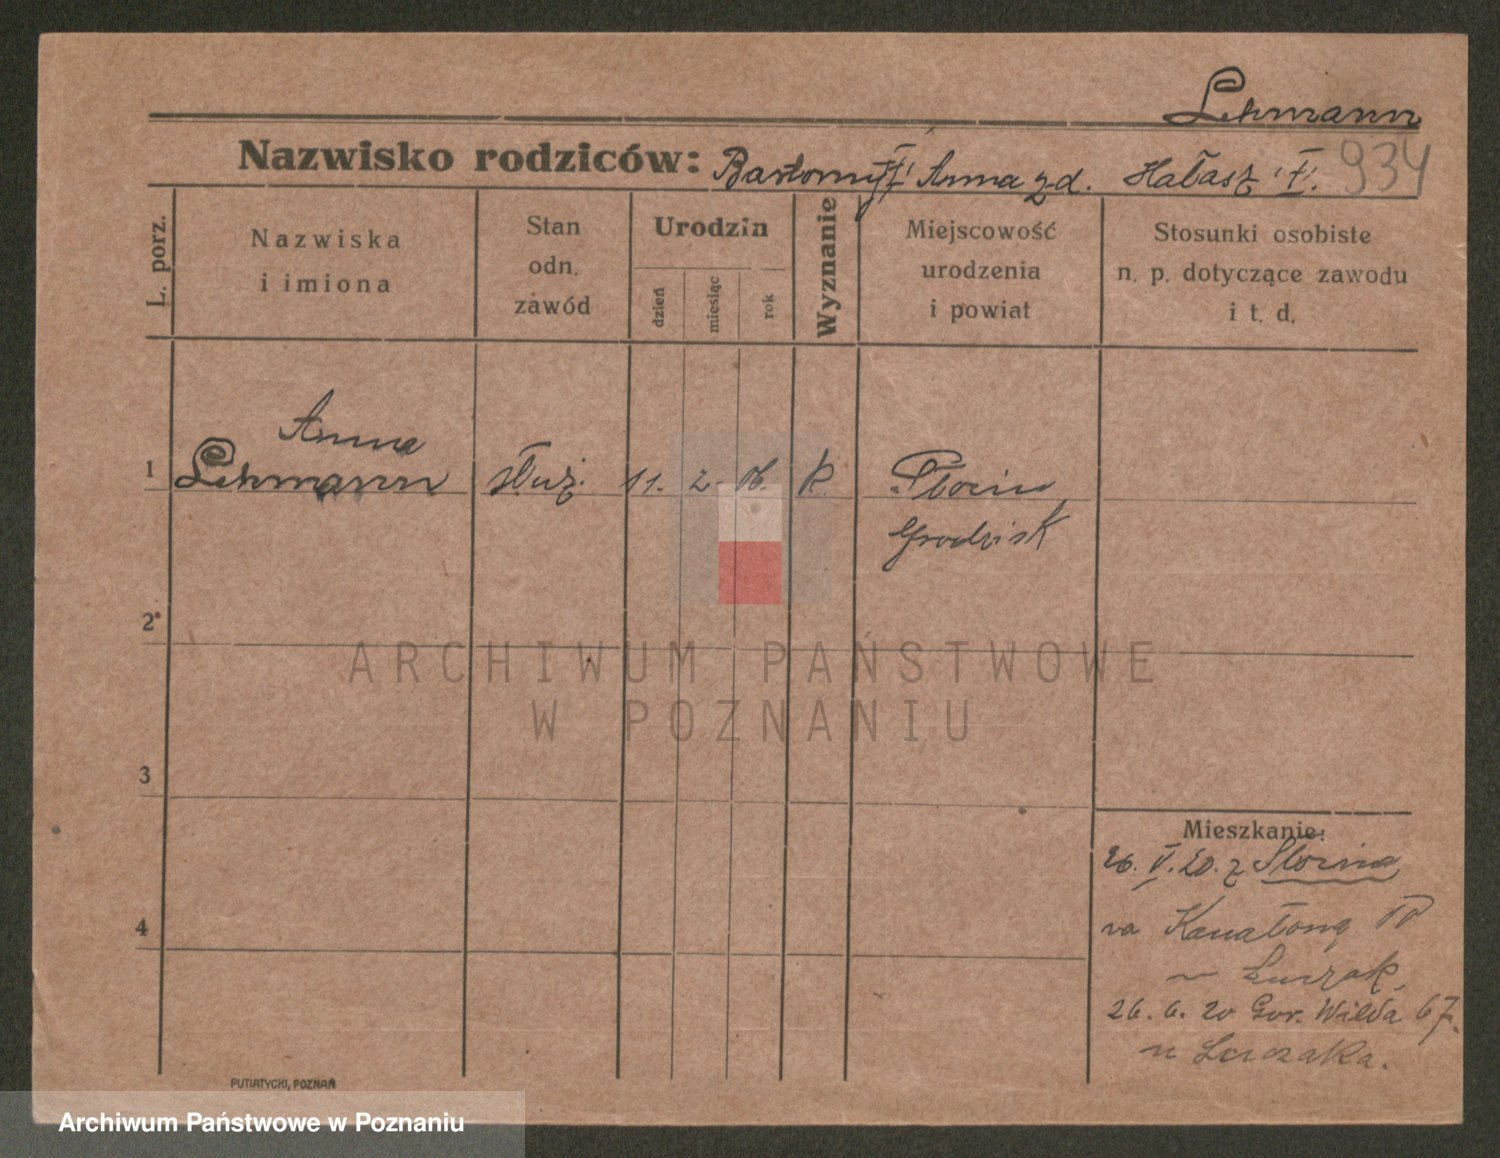 Lehmann
Nazwisko rodziców: Bartłomiej Anna z d. Hałasz 934
L. porz.
Nazwiska
i imiona
Stan
odn.
zawód
Urodzin
dzień
miesiąc
rok
Wyznanie
Miejscowość
urodzenia
i powiat
Stosunki osobiste
n. p. dotyczące zawodu
i t. d.
Anna
1 Lehmann służ. 11. 2. 06. k.
Grodzisk
2
3
4
Mieszkanie:
26. V. 20. z
na Kanałową
Łuczak,
26. 6. 20 Gór. Wilda 67.
u Łuczaka.
PUTIATYCKI, POZNAŃ
ARCHIWUM PAŃSTWOWE
W POZNANIU
Archiwum Państwowe w Poznaniu